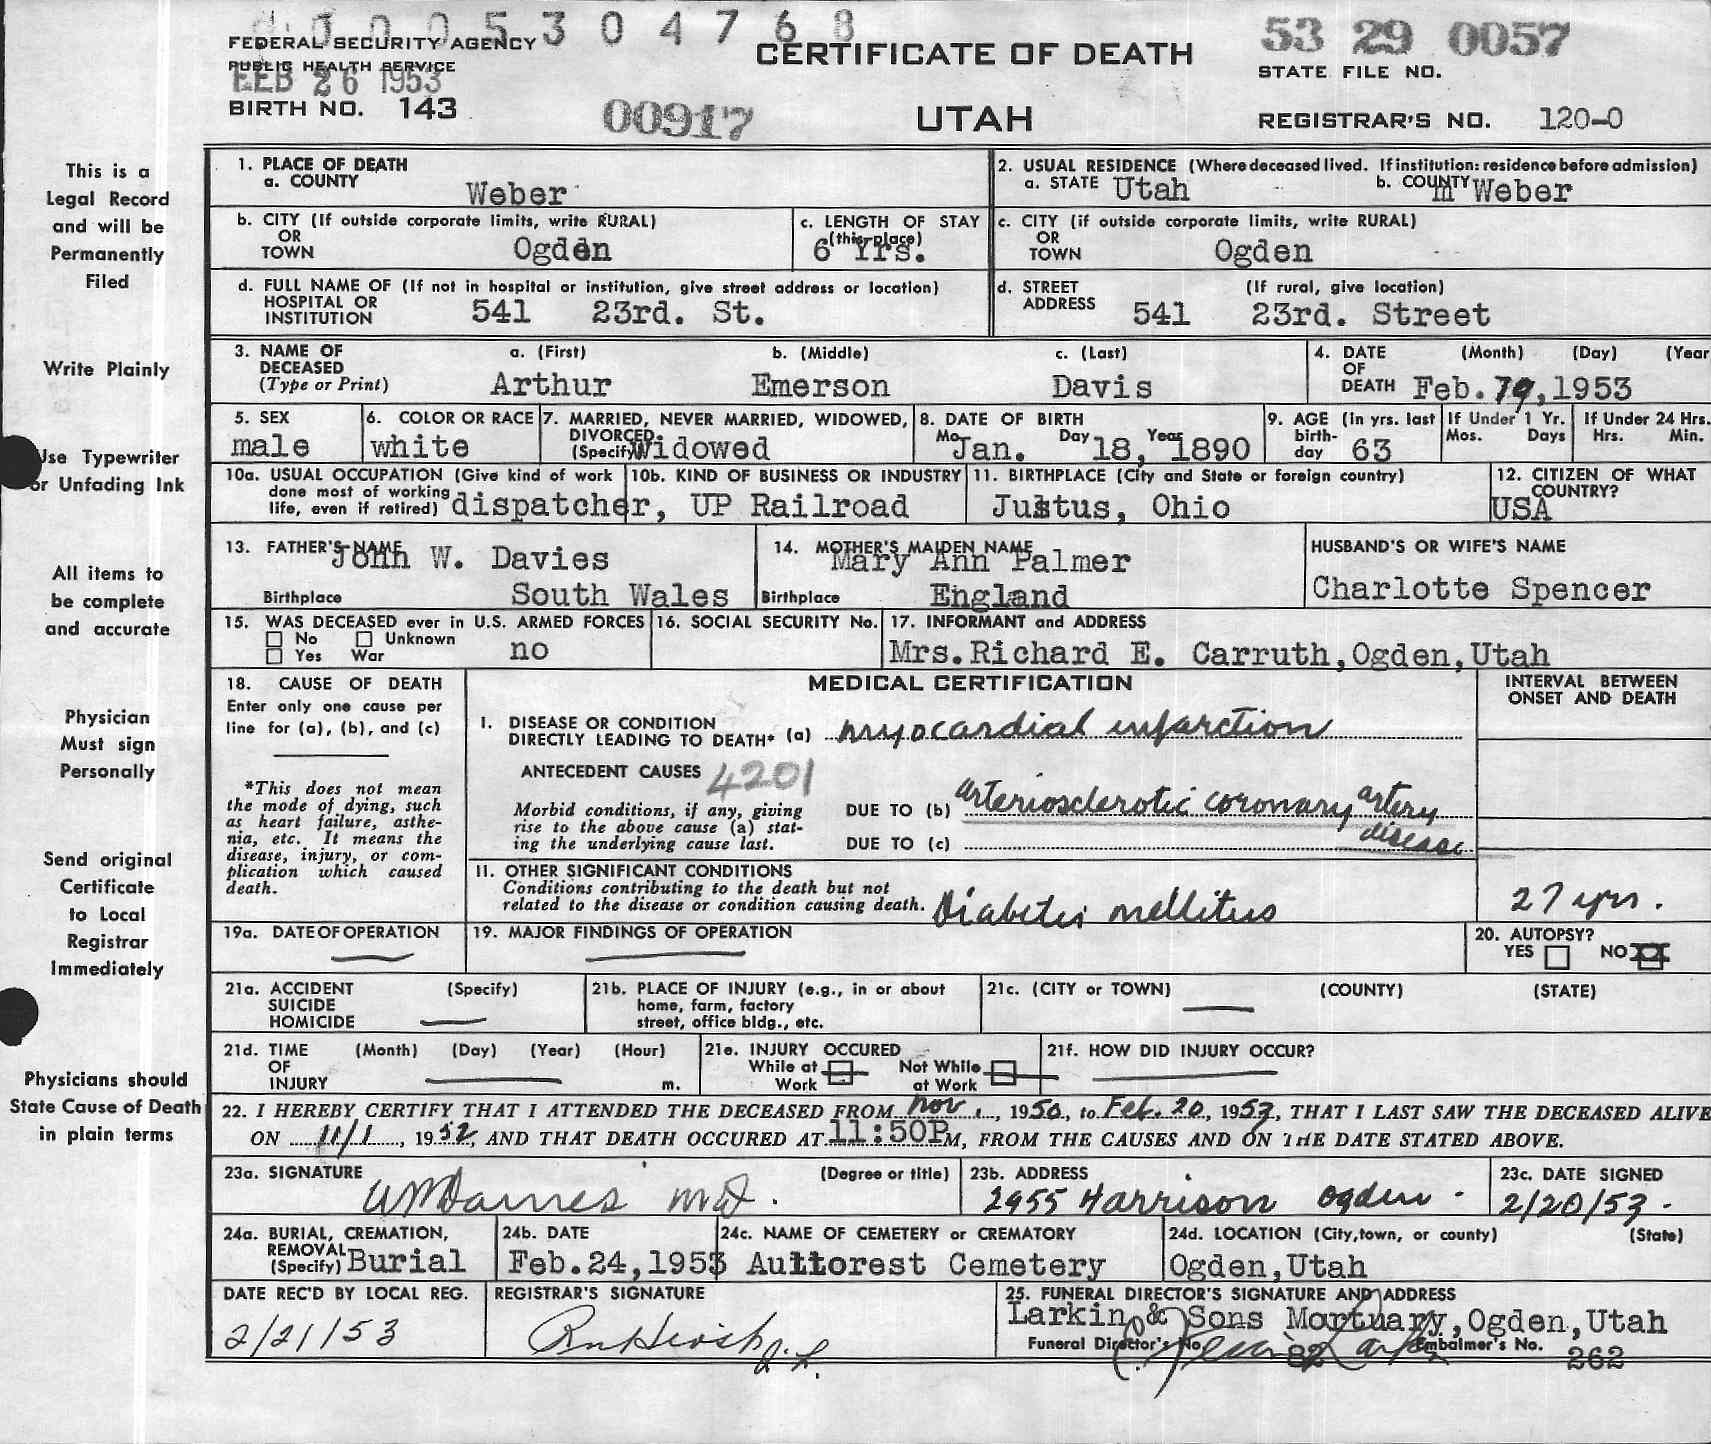 0 0 5 3 0 4 7 6 8
FEDERAL SECURITY AGENCY
PUBLIC HEALTH SERVICE
FEB 26 1953
BIRTH NO. 143
00917
CERTIFICATE OF DEATH
UTAH
53 29 0057
STATE FILE NO.
REGISTRAR'S NO. 120-0
This is a
Legal Record
and will be
Permanently
Filed
Write Plainly
Use Typewriter
or Unfading Ink
All items to
be complete
and accurate
Physician
Must sign
Personally
Send original
Certificate
to Local
Registrar
Immediately
Physicians should
State Cause of Death
in plain terms
1. PLACE OF DEATH
a. COUNTY Weber
2. USUAL RESIDENCE (Where deceased lived. If institution: residence before admission)
a. STATE Utah b. COUNTY Weber
b. CITY (If outside corporate limits, write RURAL)
OR
TOWN Ogden
c. LENGTH OF STAY
(this place)
6 Yrs.
c. CITY (if outside corporate limits, write RURAL)
OR
TOWN Ogden
d. FULL NAME OF (If not in hospital or institution, give street address or location)
HOSPITAL OR
INSTITUTION 541 23rd. St.
d. STREET (If rural, give location)
ADDRESS 541 23rd. Street
3. NAME OF
DECEASED
(Type or Print)
a. (First) b. (Middle) c. (Last)
Arthur Emerson Davis
4. DATE (Month) (Day) (Year
OF
DEATH Feb. 19, 1953
5. SEX
male
6. COLOR OR RACE
white
7. MARRIED, NEVER MARRIED, WIDOWED,
DIVORCED
(Specify) Widowed
8. DATE OF BIRTH
Mo. Day Year
Jan. 18, 1890
9. AGE (in yrs. last
birth-
day 63
If Under 1 Yr.
Mos. Days
If Under 24 Hrs.
Hrs. Min.
10a. USUAL OCCUPATION (Give kind of work
done most of working
life, even if retired) dispatcher,
10b. KIND OF BUSINESS OR INDUSTRY
UP Railroad
11. BIRTHPLACE (City and State or foreign country)
Justus, Ohio
12. CITIZEN OF WHAT
COUNTRY?
USA
13. FATHER'S NAME
John W. Davies
Birthplace South Wales
14. MOTHER'S MAIDEN NAME
Mary Ann Palmer
Birthplace England
HUSBAND'S OR WIFE'S NAME
Charlotte Spencer
15. WAS DECEASED ever in U.S. ARMED FORCES
No Unknown
Yes War no
16. SOCIAL SECURITY No.
17. INFORMANT and ADDRESS
Mrs. Richard E. Carruth, Ogden, Utah
18. CAUSE OF DEATH
Enter only one cause per
line for (a), (b), and (c)
*This does not mean
the mode of dying, such
as heart failure, asthe-
nia, etc. It means the
disease, injury, or com-
plication which caused
death.
MEDICAL CERTIFICATION
INTERVAL BETWEEN
ONSET AND DEATH
I. DISEASE OR CONDITION
DIRECTLY LEADING TO DEATH* (a) myocardial infarction
ANTECEDENT CAUSES 4201
Morbid conditions, if any, giving
rise to the above cause (a) stat-
ing the underlying cause last.
DUE TO (b) arteriosclerotic coronary artery
disease
DUE TO (c)
11. OTHER SIGNIFICANT CONDITIONS
Conditions contributing to the death but not
related to the disease or condition causing death. Diabetes mellitus 27 yrs.
19a. DATE OF OPERATION
19. MAJOR FINDINGS OF OPERATION
20. AUTOPSY?
YES NO
21a. ACCIDENT (Specify)
SUICIDE
HOMICIDE
21b. PLACE OF INJURY (e.g., in or about
home, farm, factory
street, office bldg., etc.
21c. (CITY or TOWN) (COUNTY) (STATE)
21d. TIME (Month) (Day) (Year) (Hour)
OF
INJURY m.
21e. INJURY OCCURED
While at Work
Not While at Work
21f. HOW DID INJURY OCCUR?
22. I HEREBY CERTIFY THAT I ATTENDED THE DECEASED FROM Nov., 1950, to Feb. 20, 1953, THAT I LAST SAW THE DECEASED ALIVE
ON 11/1, 1952, AND THAT DEATH OCCURED AT 11:50P M, FROM THE CAUSES AND ON THE DATE STATED ABOVE.
23a. SIGNATURE (Degree or title)
MD.
23b. ADDRESS
2955 Harrison Ogden
23c. DATE SIGNED
2/20/53
24a. BURIAL, CREMATION,
REMOVAL
(Specify) Burial
24b. DATE
Feb. 24, 1953
24c. NAME OF CEMETERY or CREMATORY
Aultorest Cemetery
24d. LOCATION (City, town, or county) (State)
Ogden, Utah
DATE REC'D BY LOCAL REG.
2/21/53
REGISTRAR'S SIGNATURE
25. FUNERAL DIRECTOR'S SIGNATURE AND ADDRESS
Larkin & Sons Mortuary, Ogden, Utah
Funeral Director's No. 82 Embalmer's No. 262